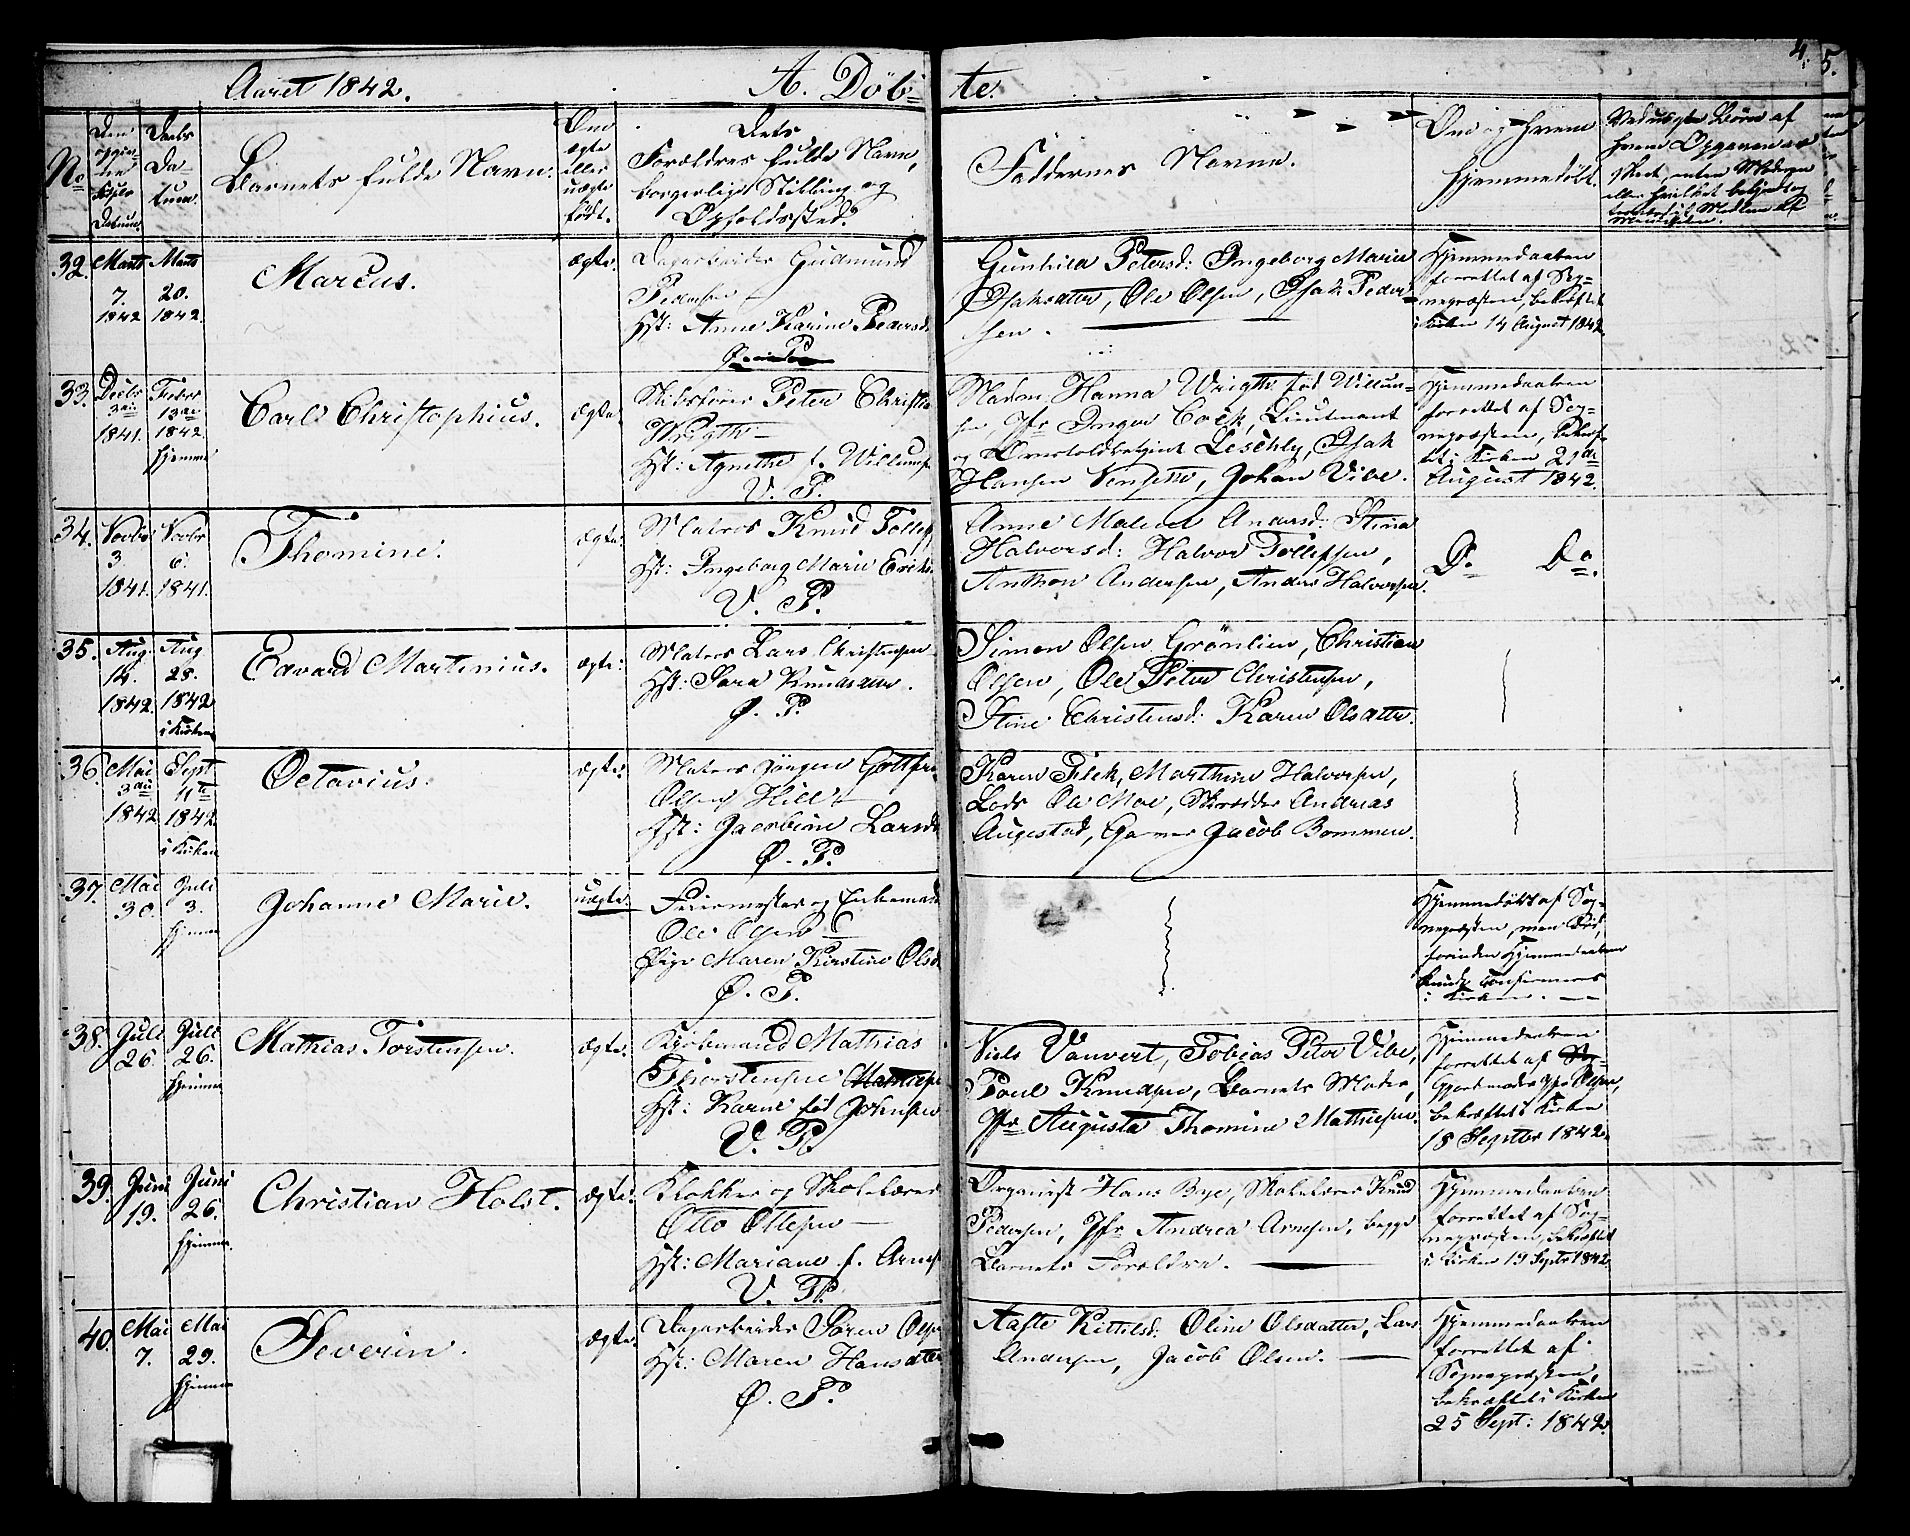 4. 5.
Aaret 1842. A. Döb= te.
No
Den opgiv- ne Føds- Datum.
Daabs Da- tum.
Barnets fulde Navn.
Om ægte eller uægte født.
Dets
Forældres fulde Navn,
borgerlige Stilling og
Opholdssted.
Faddernes Navne.
Om og hvem
hjemmedöbt.
32. Marts 7. 1842
Marts 20. 1842.
Marcus.
ægte.
Dagarbeider Gudmund
Pedersen
Hst: Anne Karine Pedersd.
Gunhild Petersd: Ingeborg Marie
Isaksdatter, Ole Olsen, Isak Peder=
sen.
Hjemmedaaben
forrettet af Sog-
nepræsten, bekræftet
i Kirken 14 August 1842.
33. Decbr 3die 1841.
Febr 13de 1842. hjemme
Carl Christophius.
Ægte.
Skibsfører Peter Christia
Wrigth
Hst: Agnethe f. Willums
V. P.
Madm. Hanna Wrigth fød Willum=
sen, Jfr Inger Cock, Lieutnant
og Leschly, Isak
Hansen Versette, Johan Vibe.
Hjemmedaaben
forrettet af Sog=
nepræsten, bekræf-
tet i Kirken 21de
August 1842.
34. Novbr 3. 1841.
Novbr 6. 1841.
Thomine.
ægte.
Matros Knud Tollefs
Hst: Ingeborg Marie Eriks.
V. P.
Anne Malene Andersd: Stina
Halvorsd: Halvor Tollefsen,
Anthon Andersen, Anders Halvorsen.
Do. Do.
35. Aug. 14. 1842.
Aug 28. 1842 i Kirken
Edvard Martinius.
ægte:
Matros Lars Christensen
Hst: Sara Knudsdatter.
Ø. P.
Simon Olsen Grönlien, Christian
Olsen, Ole Peter Christensen,
Stine Christensd: Karen Olsdatter.
36. Mai 3die 1842
Sept 11te 1842. i Kirken
Octavius.
ægte.
Matros Jörgen Gottfr.
Olsen Hill
Hst: Jacobine Larsd
Ø. P.
Karen Flek, Marthine Halvorsen,
Lods Ole Moe, Skrædder Andreas
Augestad, Garver Jacob Bommen.
37. Mai 30.
Juli 3. hjemme
Johanne Marie.
uægte.
Feiermester og Enkemand
Ole Olsen
Pige Maren Kirstine Olsd
Ø. P.
Hjemmedöbt af Sog-
nepræsten, men död,
forinden Hjemmedaaben
kunde confirmeres
i Kirken.
38. Juli 26.
Juli 26. hjemme
Mathias Torstensen.
ægte.
Kjøbmand Mathias
Thorstensen Mathiesen
Hst: Karen fød Johnsen
V. P.
Niels Vauvert, Tobias Peter Vibe,
Poul Knudsen, Barnets Moder,
Jfr Augusta Thomine Mathiesen.
Hjemmedaaben
forrettet af Sog
Gjordemoder Olsen,
bekræftet i Kirken
18 Septbr 1842.
39. Juni 19.
Juni 26. hjemme.
Christian Holst.
ægte.
Klokker og Skolelærer
Otto Ottesen
Hst: Mariane f. Arnes
V. P.
Organist Hans Bye, Skolelærer Knud
Pedersen, Jfr Andrea Arnesen, begge
Barnets Forældre.
Hjemmedaaben
forrettet af Sog-
nepræsten, bekræftet
i Kirken 19 Septr 1842
40. Mai 7.
Mai 29. hjemme
Severin.
ægte.
Dagarbeider Sören Olsen
Hst: Maren Hansdatter
Ø. P.
Aaste Kittilsd: Oline Olsdatter, Lars
Andersen, Jacob Olsen.
Hjemmedaaben
forrettet af
Sognepræsten,
bekræftet i Kirken
25 Sept: 1842.